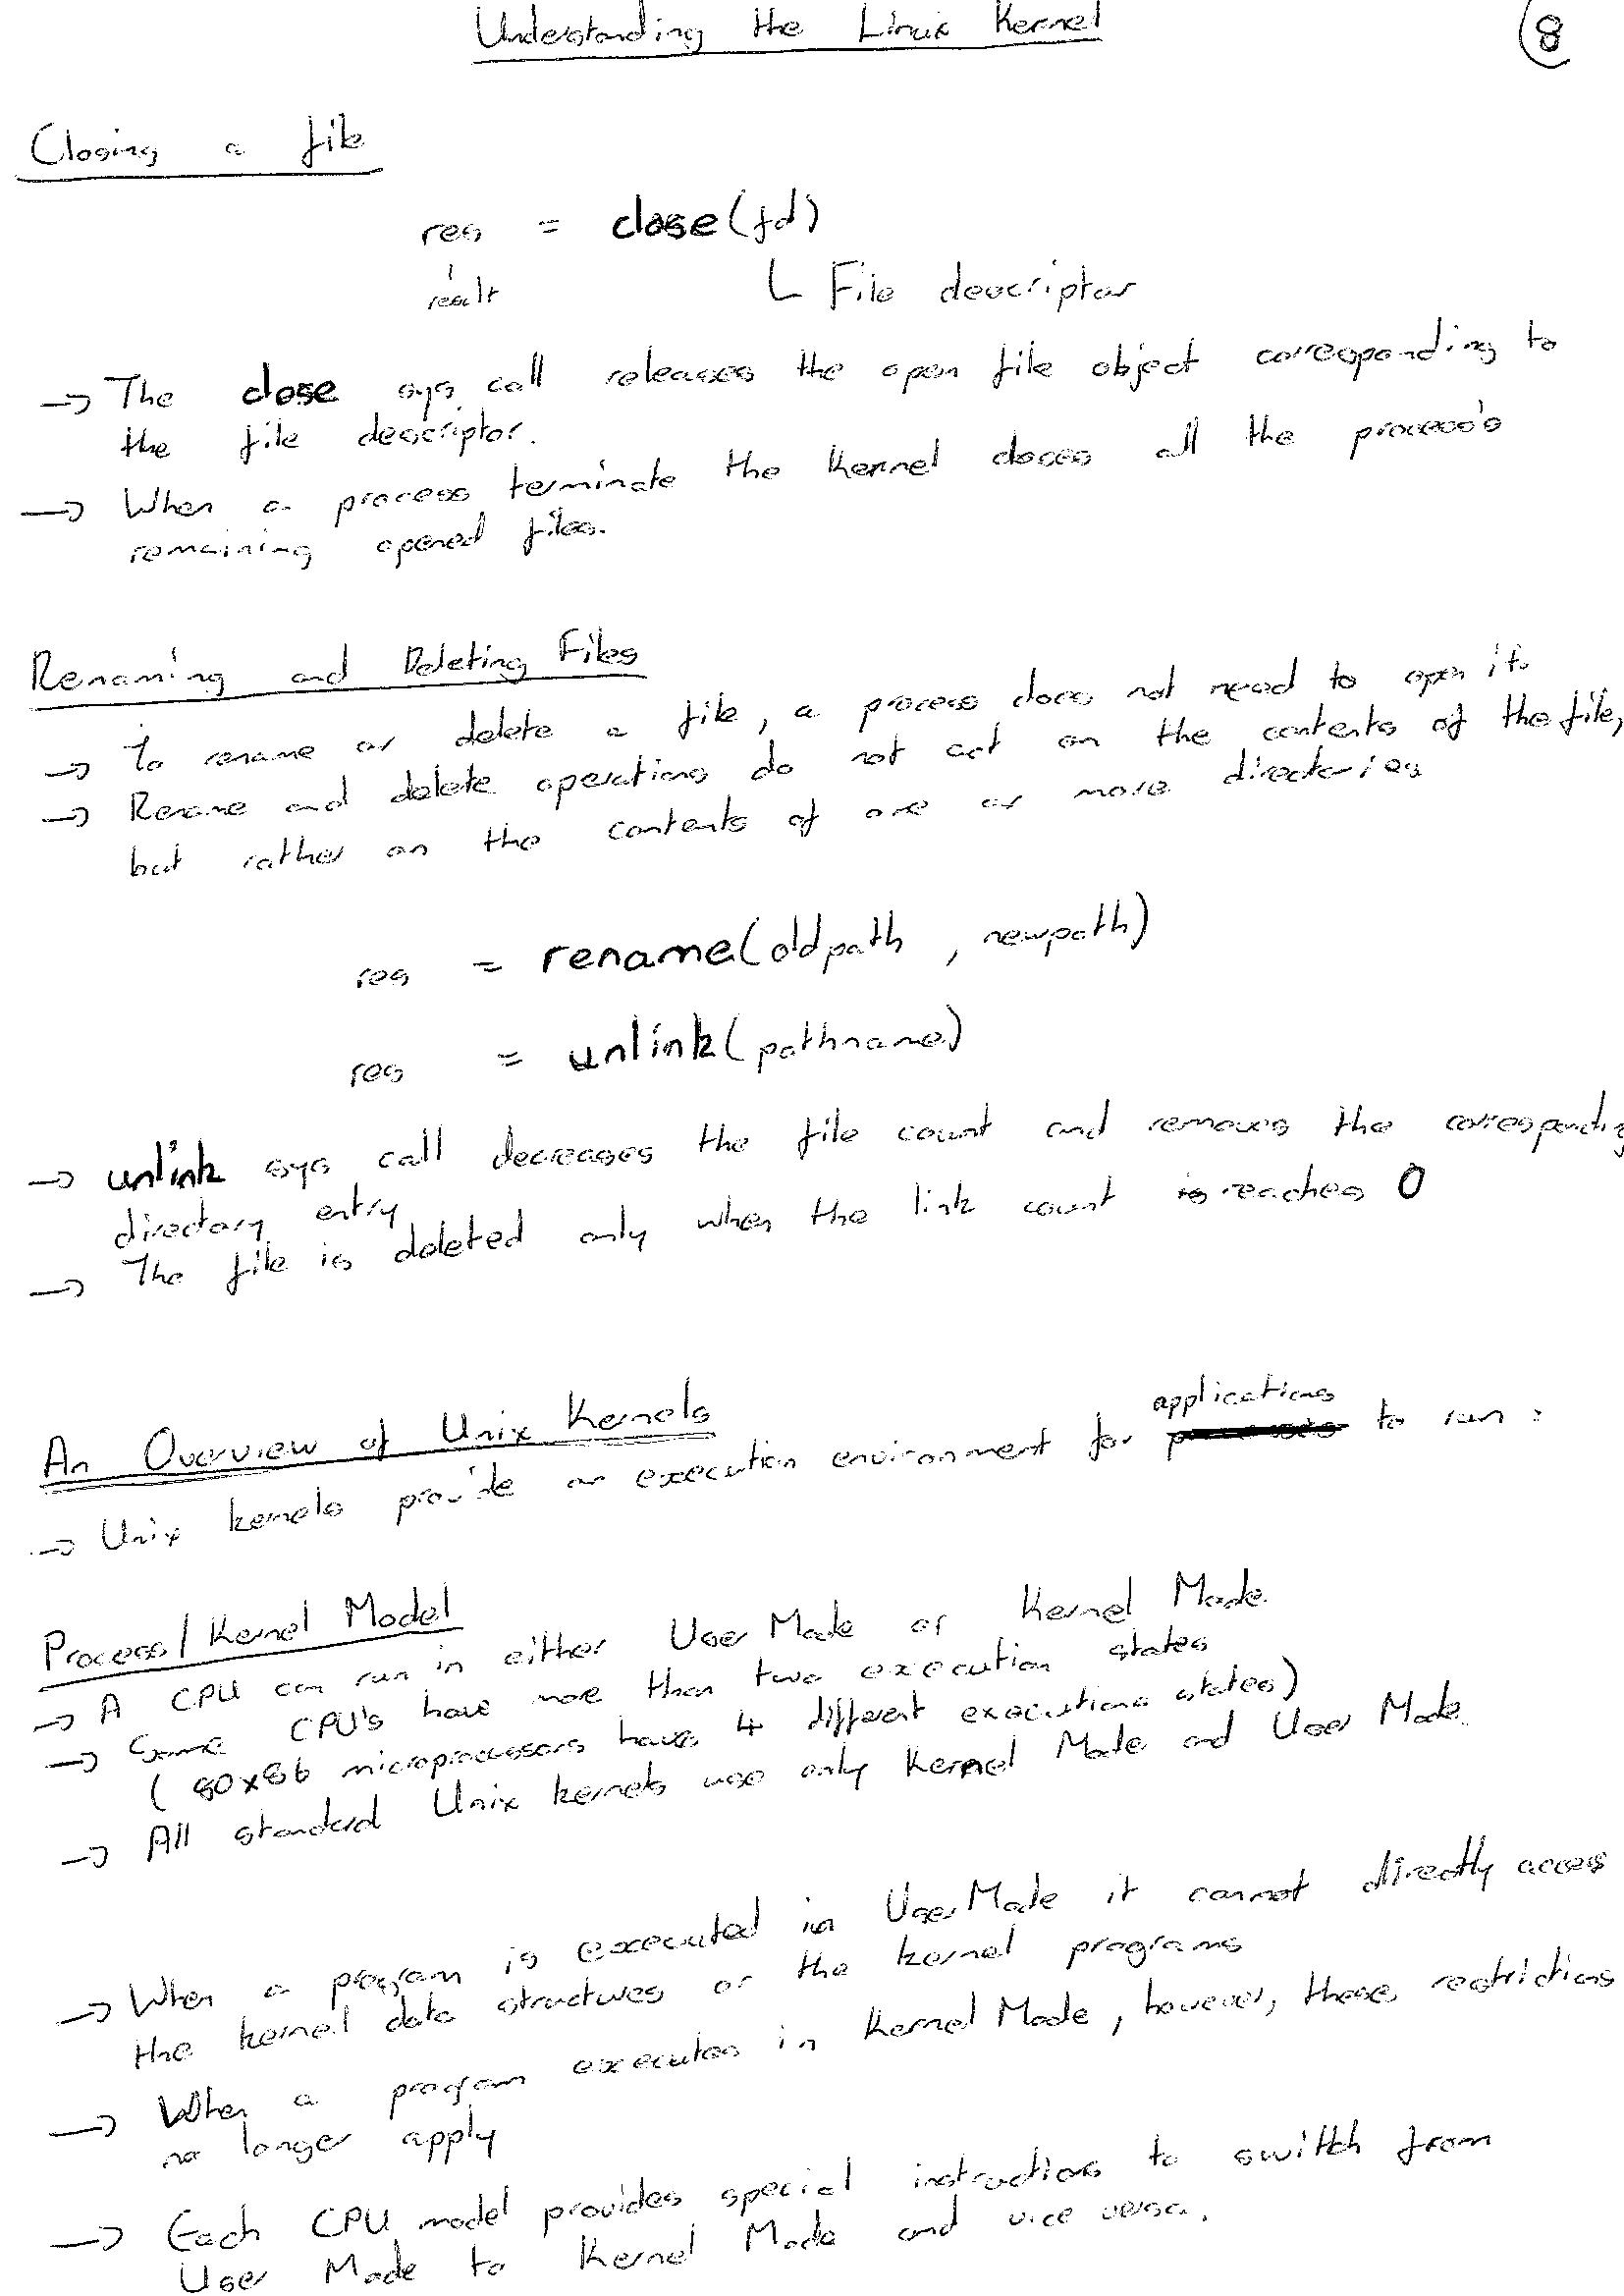 Understanding the Linux Kernel
8
Closing a file
res = close(fd)
result
File descriptor
→ The close sys. call releases the open file object corresponding to
the file descriptor.
→ When a process terminate the kernel closes all the process's
remaining opened files.
Renaming and Deleting Files
→ To rename or delete a file, a process does not need to open it.
→ Rename and delete operations do not act on the contents of the file,
but rather on the contents of one or more directories
res = rename(oldpath, newpath)
res = unlink(pathname)
→ unlink sys call decreases the file count and removes the corresponding
directory entry
→ The file is deleted only when the link count is reaches 0
An Overview of Unix Kernels
applications
→ Unix kernels provide an execution environment for processes to run:
Process/Kernel Model
→ A CPU can run in either User Mode or Kernel Mode.
→ Some CPU's have more than two execution states
(80x86 microprocessors have 4 different executions states)
→ All standard Unix kernels use only Kernel Mode and User Mode.
→ When a program is executed in User Mode it cannot directly access
the kernel data structures or the kernel programs
→ When a program executes in Kernel Mode, however, these restrictions
no longer apply
→ Each CPU model provides special instructions to switch from
User Mode to Kernel Mode and vice versa.